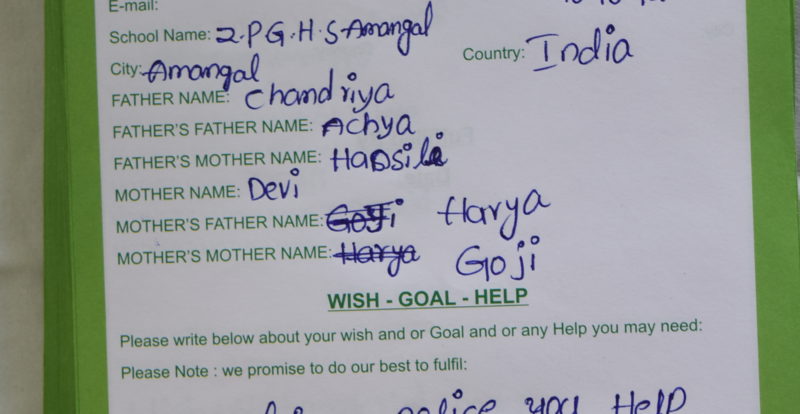 E-mail:
School Name: Z.P.G.H.S Amangal
City: Amangal Country: India
FATHER NAME: Chandriya
FATHER'S FATHER NAME: Achya
FATHER'S MOTHER NAME: Haasili
MOTHER NAME: Devi
MOTHER'S FATHER NAME: Goji Harya
MOTHER'S MOTHER NAME: Harya Goji
WISH - GOAL - HELP
Please write below about your wish and or Goal and or any Help you may need:
Please Note : we promise to do our best to fulfil:
police you Help